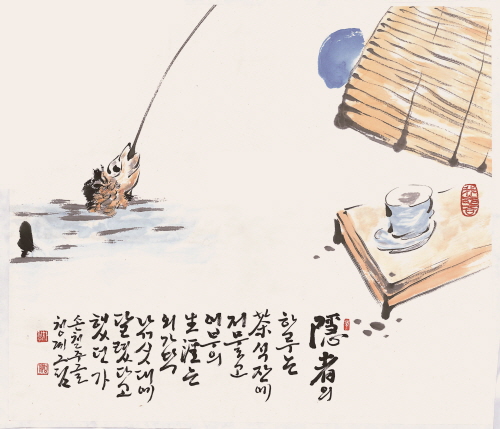 隱者의
하루는
茶석잔에
저물고
어부의
生涯는
외가닥
낚싯대에
달렸다고
했던가
손철주글
그림